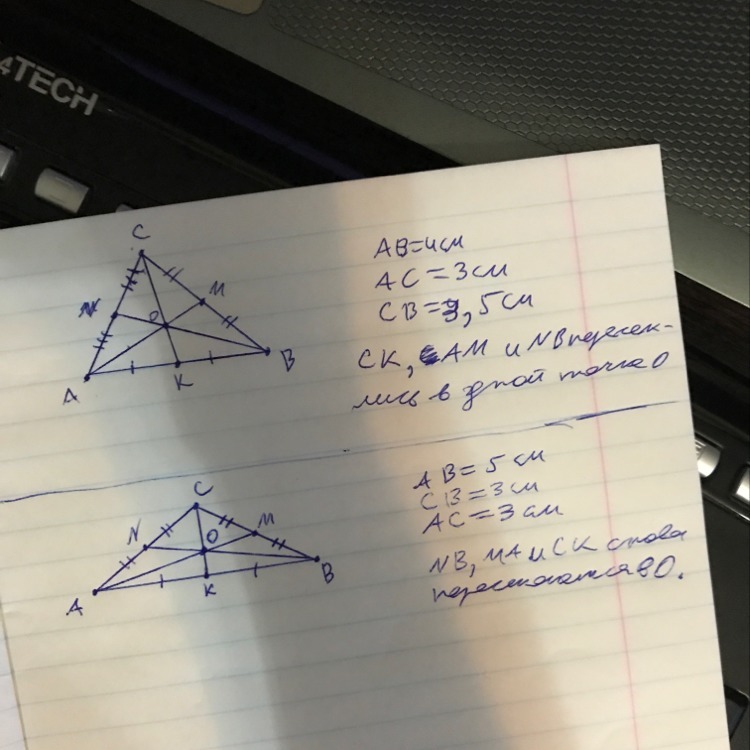 4TECH
C
N
M
O
A
K
B
AB=4см
AC=3см
CB=3,5см
CK, AM и NB пересек-
лись в одной точке O
C
N
O
M
A
K
B
AB=5см
CB=3см
AC=3см
NB, MA и CK снова
пересекаются в O.